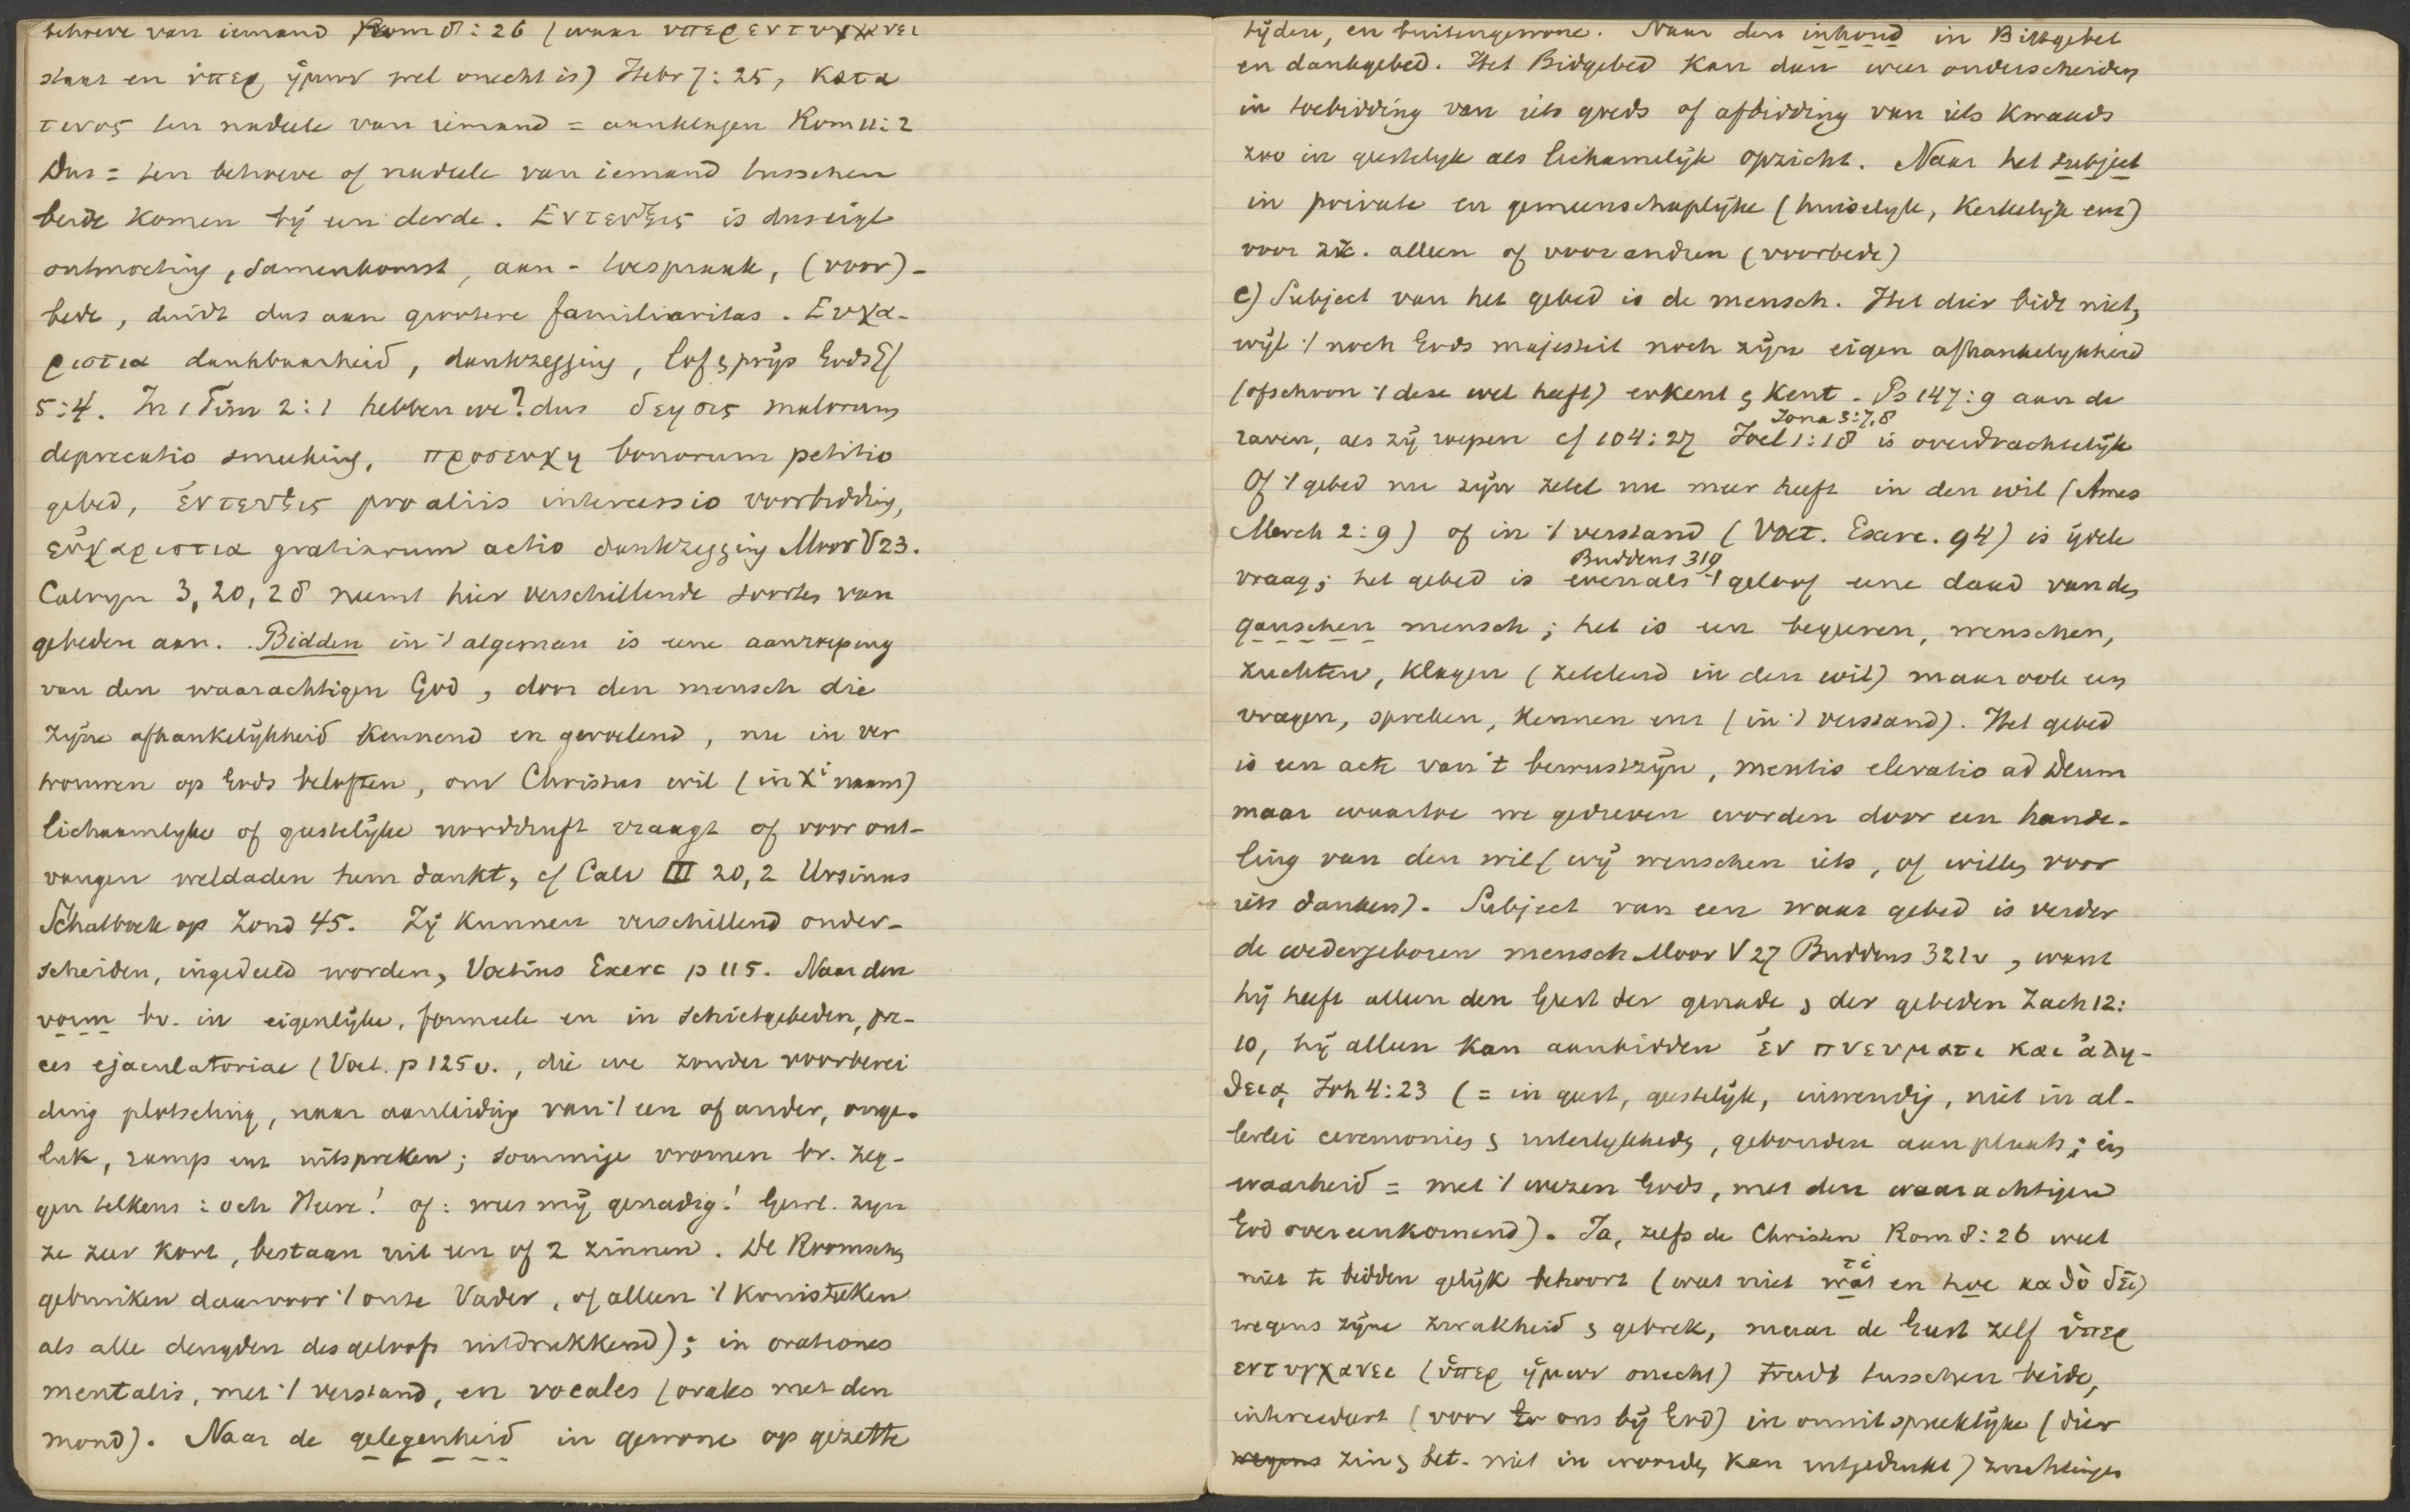 behoeve van iemand Rom 8:26 (waar υπερεντυγχανει
staat en ὑπερ ἡμων wel onecht is) Hebr 7:25, κατα
τινος ten nadeele van iemand = aanklagen Rom 11:2
Dus = ten behoeve of nadeele van iemand tusschen
beide komen bij een derde. Εντευξις is dus eigl
ontmoeting, samenkomst, aan- toespraak, (voor)-
bede, duidt dus aan grootere familiaritas. Ευχα-
ριστια dankbaarheid, dankzegging, lof & prijs Gods Ef
5:4. In 1 Tim 2:1 hebben we? dus δεησις malorum
deprecatio smeeking, προσευχη bonorum petitio
gebed, ἐντευξις pro aliis intercessio voorbidding,
εὐχαριστια gratiarum actio dankzegging Moor V 23.
Calvyn 3, 20, 28 neemt hier verschillende soorten van
gebeden aan. Bidden in 't algemeen is eene aanroeping
van den waarachtigen God, door den mensch die
zijne afhankelijkheid kennend en gevoelend, nu in ver
trouwen op Gods beloften, om Christus wil (in Xi naam)
lichaamlyke of geestelijke nooddruft vraagt of voor ont-
vangen weldaden hem dankt, cf Calv III 20, 2 Ursinus
Schatboek op Zond 45. Zij kunnen verschillend onder-
scheiden, ingedeeld worden, Voetius Exerc p 115. Naar den
vorm bv. in eigenlijke, formeele en in schietgebeden, pre-
ces ejaculatoriae (Voet. p 125 v., die we zonder voorberei
ding plotseling, naar aanleiding van 't een of ander, onge-
luk, ramp enz uitspreken; sommige vromen bv. zeg-
gen telkens: och Heere! of: wees mij genadig! Gewl. zyn
ze zeer kort, bestaan uit een of 2 zinnen. De Roomschen
gebruiken daarvoor 't onze Vader, of alleen 't kruisteeken
als alle deugden des geloofs uitdrukkend); in orationes
mentalis, met 't verstand, en vocales (orales met den
mond). Naar de gelegenheid in gewone op gezette
tijden, en buitengewone. Naar den inhoud in Bidgebed
en dankgebed. Het Bidgebed kan dan weer onderscheiden
in toebidding van iets goeds of afbidding van iets kwaads
zoo in geestelyk als lichamelijk opzicht. Naar het subject
in private en gemeenschaplijke (huiselyk, kerkelijk enz)
voor zich alleen of voor anderen (voorbede)
c) Subject van het gebed is de mensch. Het dier bidt niet,
wijl 't noch Gods majesteit noch zijn eigen afhankelykheid
(ofschoon 't deze wel heeft) erkent & kent. Ps 147:9 aan de
Jona 3:7,8
raven, als zij roepen cf 104:27 Joel 1:18 is overdrachtelijk
Of 't gebed nu zijn zetel nu meer heeft in den wil (Ames
Merch 2:9) of in 't verstand (Voet. Exerc. 94) is ijdele
Buddeus 319
vraag; het gebed is evenals 't geloof eene daad van den
ganschen mensch; het is een begeeren, wenschen,
zuchten, klagen (zetelend in den wil) maar ook een
vragen, spreken, kennen enz (in 't verstand). Het gebed
is een acte van 't bewustzijn, mentis elevatio ad Deum
maar waartoe we gedreven worden door een hande-
ling van den wil (wij wenschen iets, of willen voor
iets danken). Subject van een waar gebed is verder
de wedergeboren mensch Moor V 27 Buddeus 321 v, want
hij heeft alleen den Geest der genade & der gebeden Zach 12:
10, hij alleen kan aanbidden ἐν πνευματι και ἀλη-
θειᾳ Joh 4:23 (= in geest, geestelijk, inwendig, niet in al-
lerlei ceremoniën & uiterlijkheden, gebonden aan plaats; in
waarheid = met 't wezen Gods, met den waarachtigen
God overeenkomend). Ja, zelfs de Christen Rom 8:26 weet
τι
niet te bidden gelijk behoort (weet niet wat en hoe καθὸ δεῖ)
wegens zijne zwakheid & gebrek, maar de Geest zelf ὑπερ
εντυγχανει (ὑπερ ἡμων onecht) treedt tusschen beide,
intercedeert (voor ons bij God) in onuitspreeklijke (dier
wegens zin & bet. niet in woorden kan uitgedrukt) zuchtingen